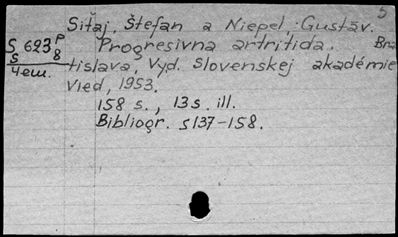 5
Siťaj, Štefan a Niepel, Gustáv.
S 623 P Progresívna artritída. Bra-
S 8 tislava, Vyd. Slovenskej akadémie
4em. vied, 1953.
158 s., 13 s. ill.
Bibliogr. s 137-158.